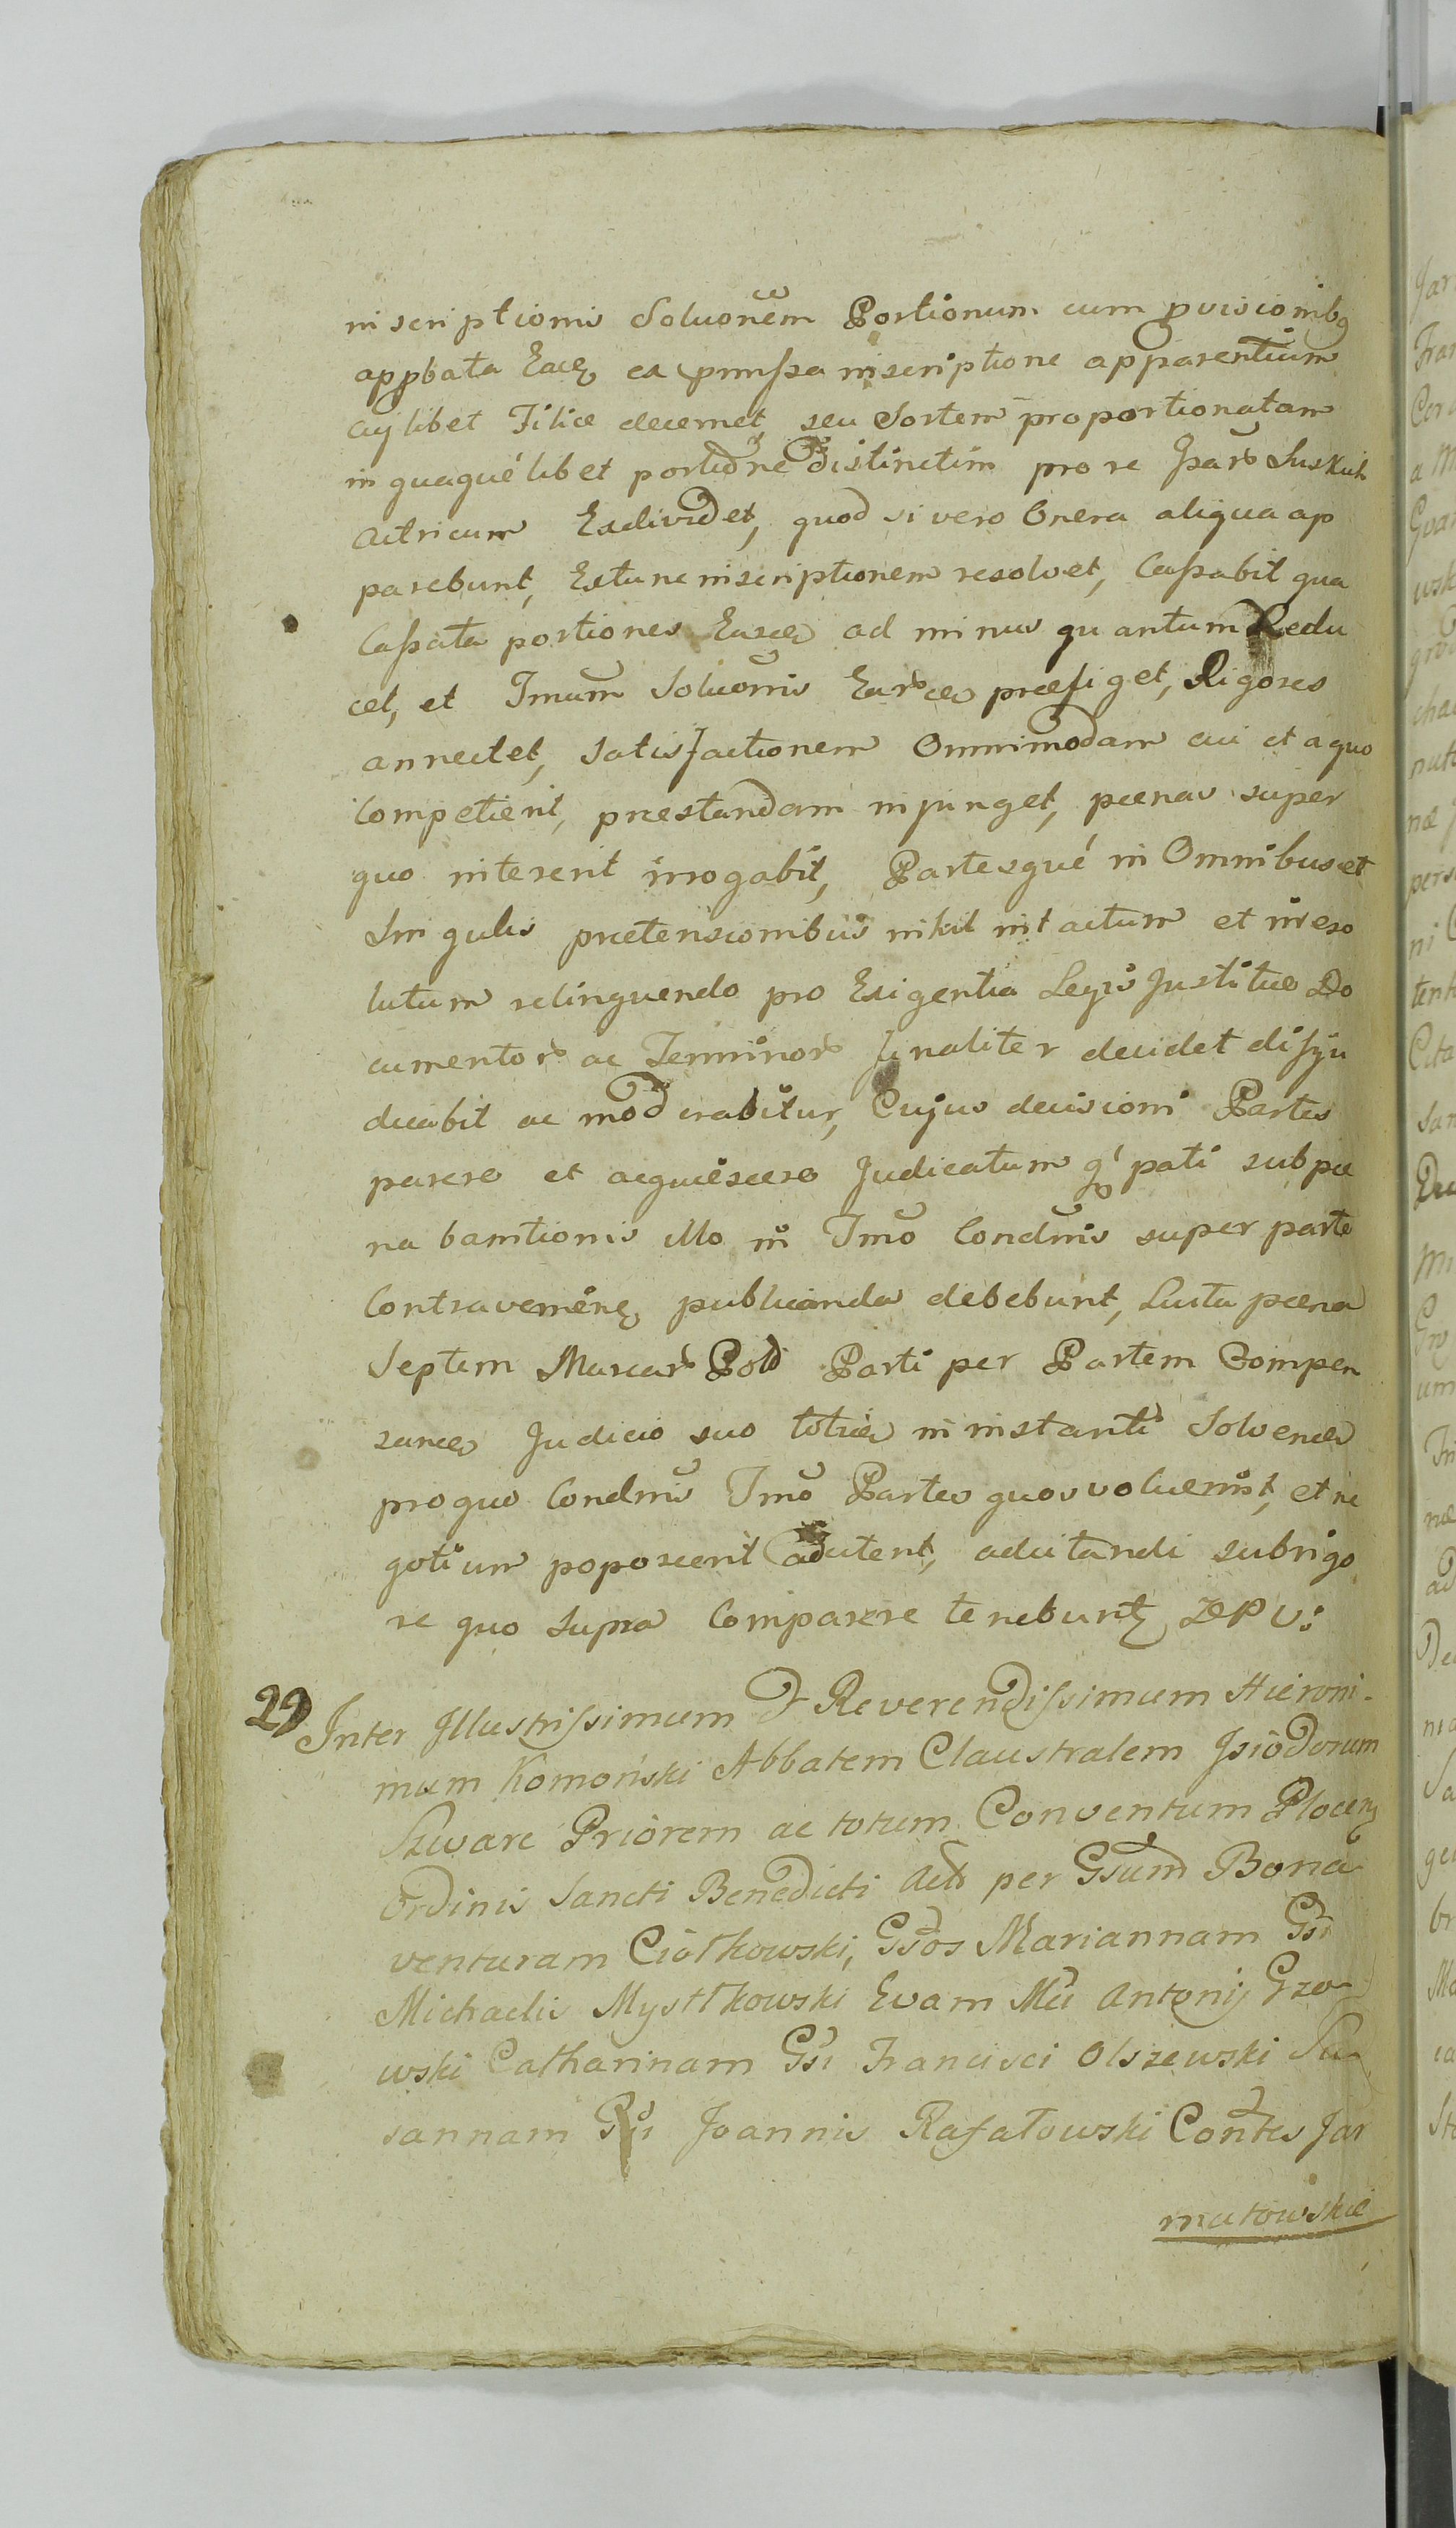 inscriptionis Soluoñem Portionum cum pvisionibg
appbata Eaeq ex pmissa inscriptione apparentium
cujlibet Filiæ decernet, seu Sortem proportionatam
in quaquélibet portione distinctim pro re Ipar Suskich
Actricum Exdividet, quod si vero Onera aliqua ap
parebunt, Extunc inscriptionem resolvet, Cassabit qua
Cassata portiones ad minus quantum Redu
cet, et Tmum Soluoñis præfiget, Rigores
annectet, Satisfactionem Omnimodam cui et a quo
Competierit, præstandam injunget, pœnas super
quo intererit irrogabit, Partesqué in Omnibus et
Singulis prætensionibus nihil intactum et irreso
lutum relinquendo pro Exigentia Legis Justitiæ Do
cumentor ac Terminor finaliter decidet dijju
dicabit ac moderabitur, Cujus decisioni Partes
parere et acquiescere Judicatum q pati sub pœ
na bannitionis illo in Tmo Condnis super parte
Contraveniene publicanda debebunt, Lucta pœna
Septem Marcar Pold Parti per Partem Compen
sanda Judicio suo toties in instanti Solvenda
pro quo Condnis Tmo Partes quos voluerint, et ne
gotium poposcerit adcitent, adcitandi sub rigo
re quo Supra Comparere tenebunt
29 Inter Illustrissimum & Reverendissimum Hieroni-
mum Komoński Abbatem Claustralem Isiodorum
Szwarc Priorem ac totum Conventum Plocen
Ordinis Sancti Benedicti Act per Gsum Bona
venturam Ciołkowski, Gsos Mariannam Gsi
Michaelis Mystkowski Evam Mci Antonij Grzo
wski Catharinam Gsi Francisci Olszewski Su
sannam Gsi Joannis Rafałowski Contes Jar
mutowskie